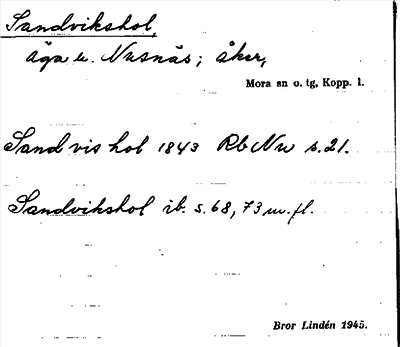 Sandvikshol,
äga u. Nusnäs; åker,
Mora sn o. tg, Kopp. l.
Sandvis hol 1843 Rb Nu s. 21.
Sandvikshol ib. s. 68, 73 m. fl.
Bror Lindén 1945.